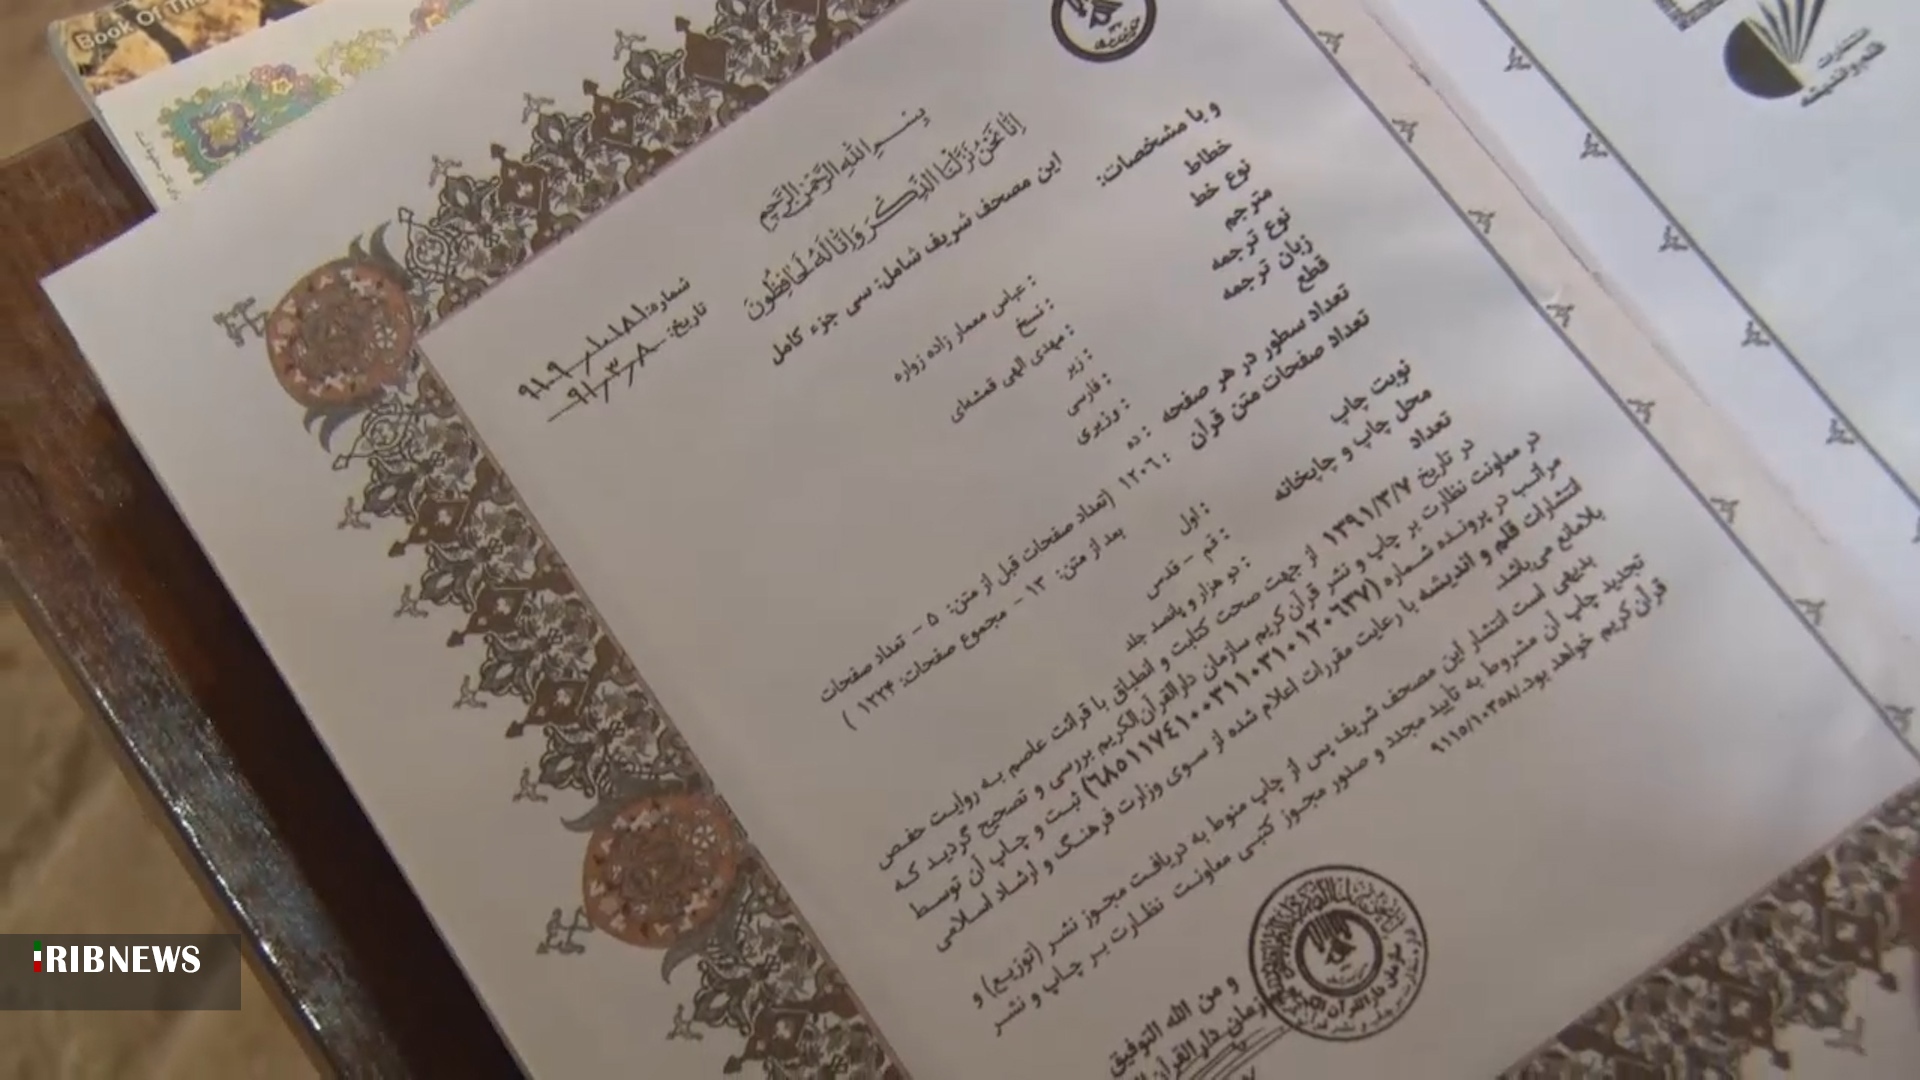 Book Of The
انتشارات
قلم و اندیشه
بِسْمِ اللهِ الرَّحْمنِ الرَّحِيمِ
اِنَّا نَحْنُ نَزَّلْنَا الذِّكْرَ وَاِنَّا لَهُ لَحَافِظُونَ
شماره: ۹۱۰۹/۱۰۱۸۱
تاریخ: ۹۱/۳/۸
این مصحف شریف شامل: سی جزء کامل
و با مشخصات:
خطاط : عباس معمار زاده زواره
نوع خط : نسخ
مترجم : مهدی الهی قمشه‌ای
نوع ترجمه : زیر
زبان ترجمه : فارسی
قطع : وزیری
تعداد سطور در هر صفحه : ده
تعداد صفحات متن قرآن : ۱۲۰۶ (تعداد صفحات قبل از متن: ۵ - تعداد صفحات
بعد از متن: ۱۳ - مجموع صفحات: ۱۲۲۴ )
نوبت چاپ : اول
محل چاپ و چاپخانه : قم - قدس
تعداد : دو هزار و پانصد جلد
در تاریخ ۱۳۹۱/۳/۷ از جهت صحت کتابت و انطباق با قرائت عاصم به روایت حفص
در معاونت نظارت بر چاپ و نشر قرآن کریم سازمان دارالقرآن‌الکریم بررسی و تصحیح گردید که
مراتب در پرونده شماره (۶۸۵۱۱۷۴۱۰۰۳۱۱۰۰۳۱۰۱۲۰۶۳۷) ثبت و چاپ آن توسط
انتشارات قلم و اندیشه با رعایت مقررات اعلام شده از سوی وزارت فرهنگ و ارشاد اسلامی
بلامانع می‌باشد
بدیهی است انتشار این مصحف شریف پس از چاپ منوط به دریافت مجوز نشر (توزیع) و
تجدید چاپ آن مشروط به تأیید مجدد و صدور مجوز کتبی معاونت نظارت بر چاپ و نشر
قرآن کریم خواهد بود./۹۱۱۵/۱۰۳۵۸
و من الله التوفیق
سازمان دارالقرآن
IRIBNEWS